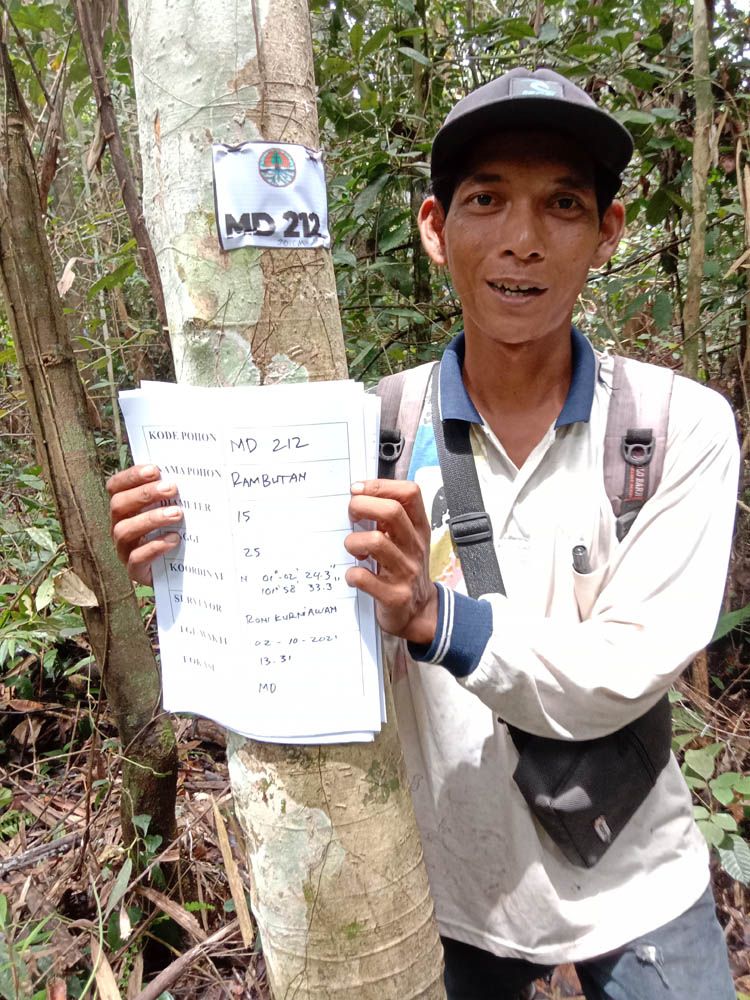 MD 212
KODE POHON MD 212
NAMA POHON RAMBUTAN
DIAMETER 15
25
KOORDINAT N 01°-02', 24.3"
101° 58' 33.3"
SURVEYOR RONI KURNIAWAN
TGL/WAKTU 02-10-2021
13.31
LOKASI MD